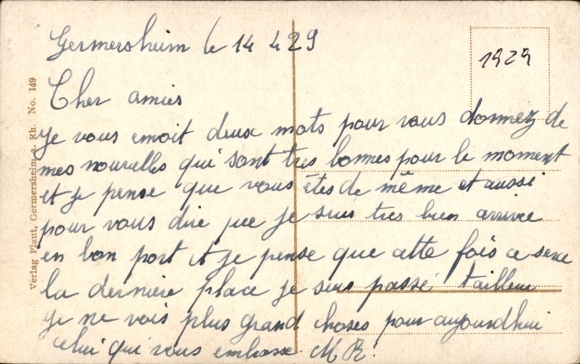 Germersheim le 14 4 29
1929
Cher amies
Je vous envoit deux mots pour vous donnez de
mes nouvelles qui sont tres bonnes pour le moment
et je pense que vous êtes de même et aussi
pour vous dire que je suis tres bien arrivée
en bon port et je pense que cette fois ce sera
la dernière place je suis passé tailleur
je ne vois plus grand choses pour aujourdhui
celui qui vous embrasse M R.
Verlag Plaut, Germersheim a. Rh. No. 149